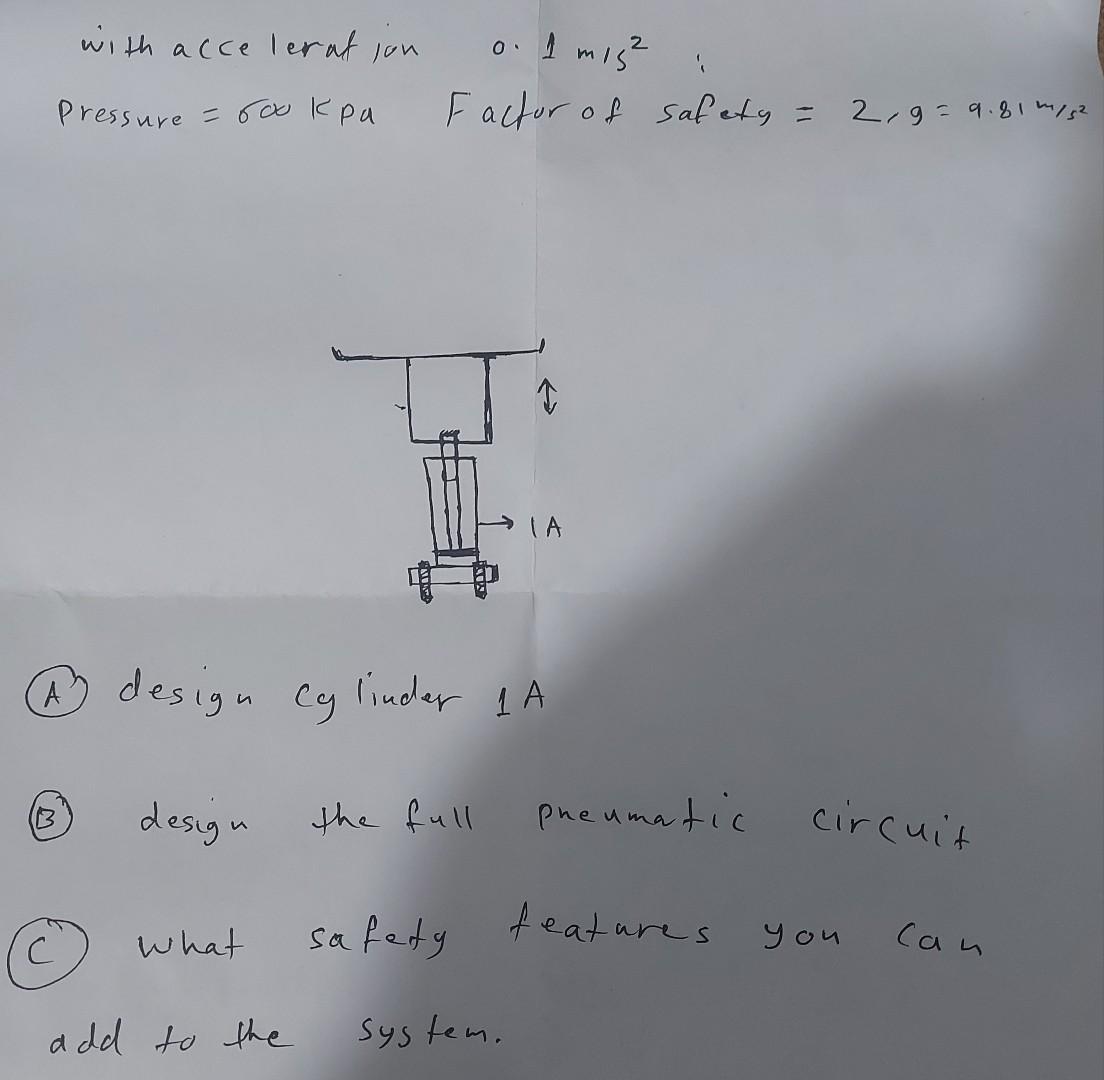 with acceleration 0.1 m/s²;
Pressure = 600 kpa Factor of safety = 2, g = 9.81 m/s²
1A
(A) design cylinder 1A
(B) design the full pneumatic circuit
(C) what safety features you can
add to the system.